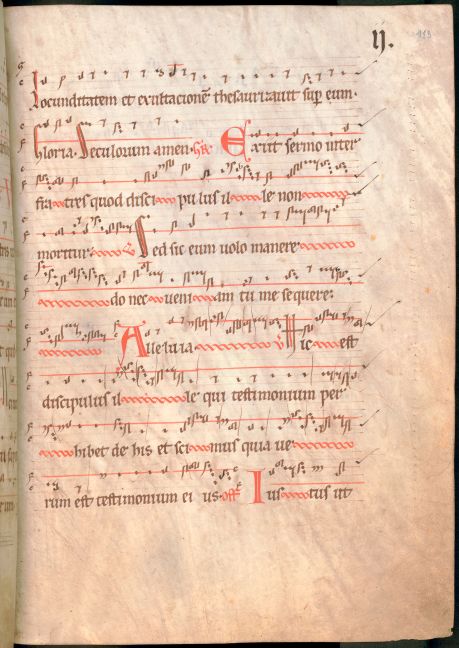 IJ. 113
Iocunditatem et exultacionē thesaurizauit sup eum.
Gloria. Seculorum amen. Exiit sermo inter
fratres quod disci pulus il le non
moritur. Sed sic eum uolo manere
do nec ueni am tu me sequere.
Alleluia ℣ Hic est
discipulus il le qui testimonium per
hibet de his et sci mus quia ue
rum est testimonium ei us. off Ius tus ut